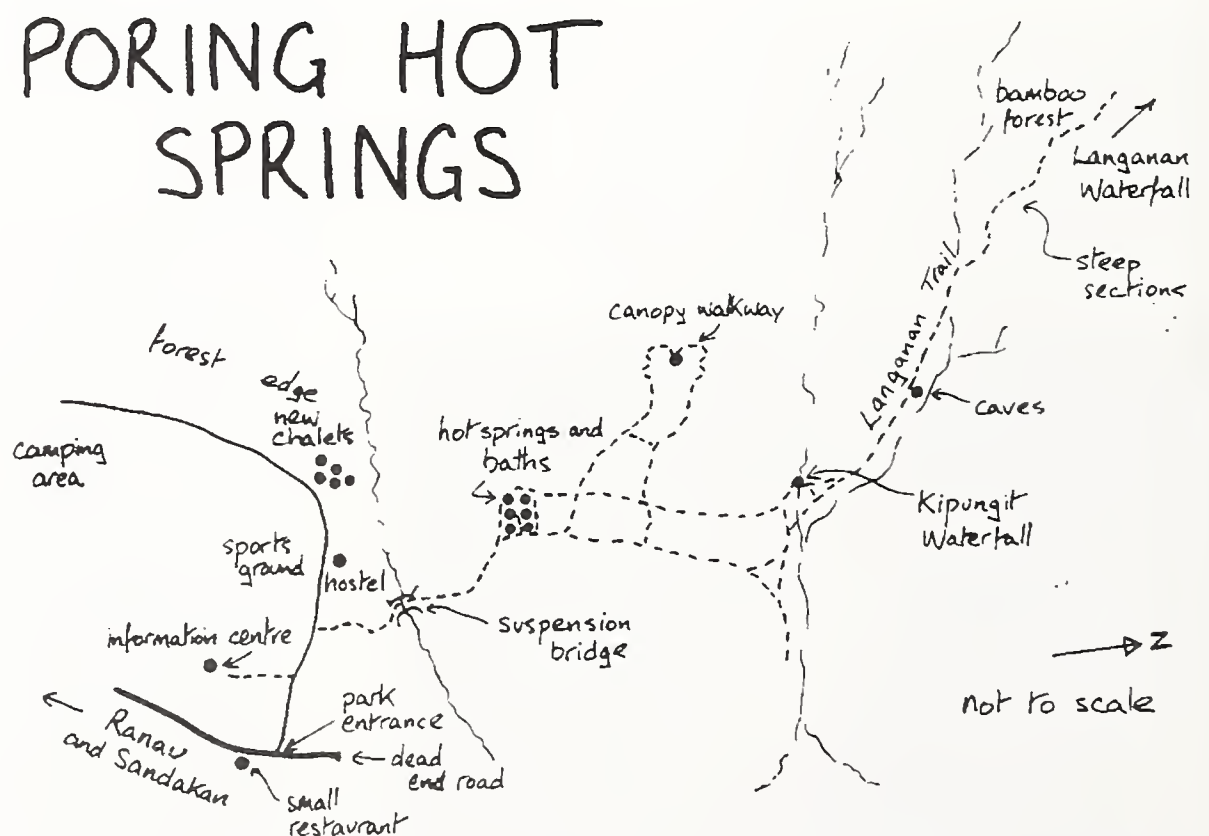 PORING HOT
SPRINGS
bamboo
forest
Langanan
Waterfall
steep
sections
Langanan Trail
canopy walkway
forest
edge
new
chalets
camping
area
hot springs and
baths
caves
Kipungit
Waterfall
sports
ground
hostel
suspension
bridge
information centre
park
entrance
Ranau
and Sandakan
dead
end road
small
restaurant
Z
not to scale